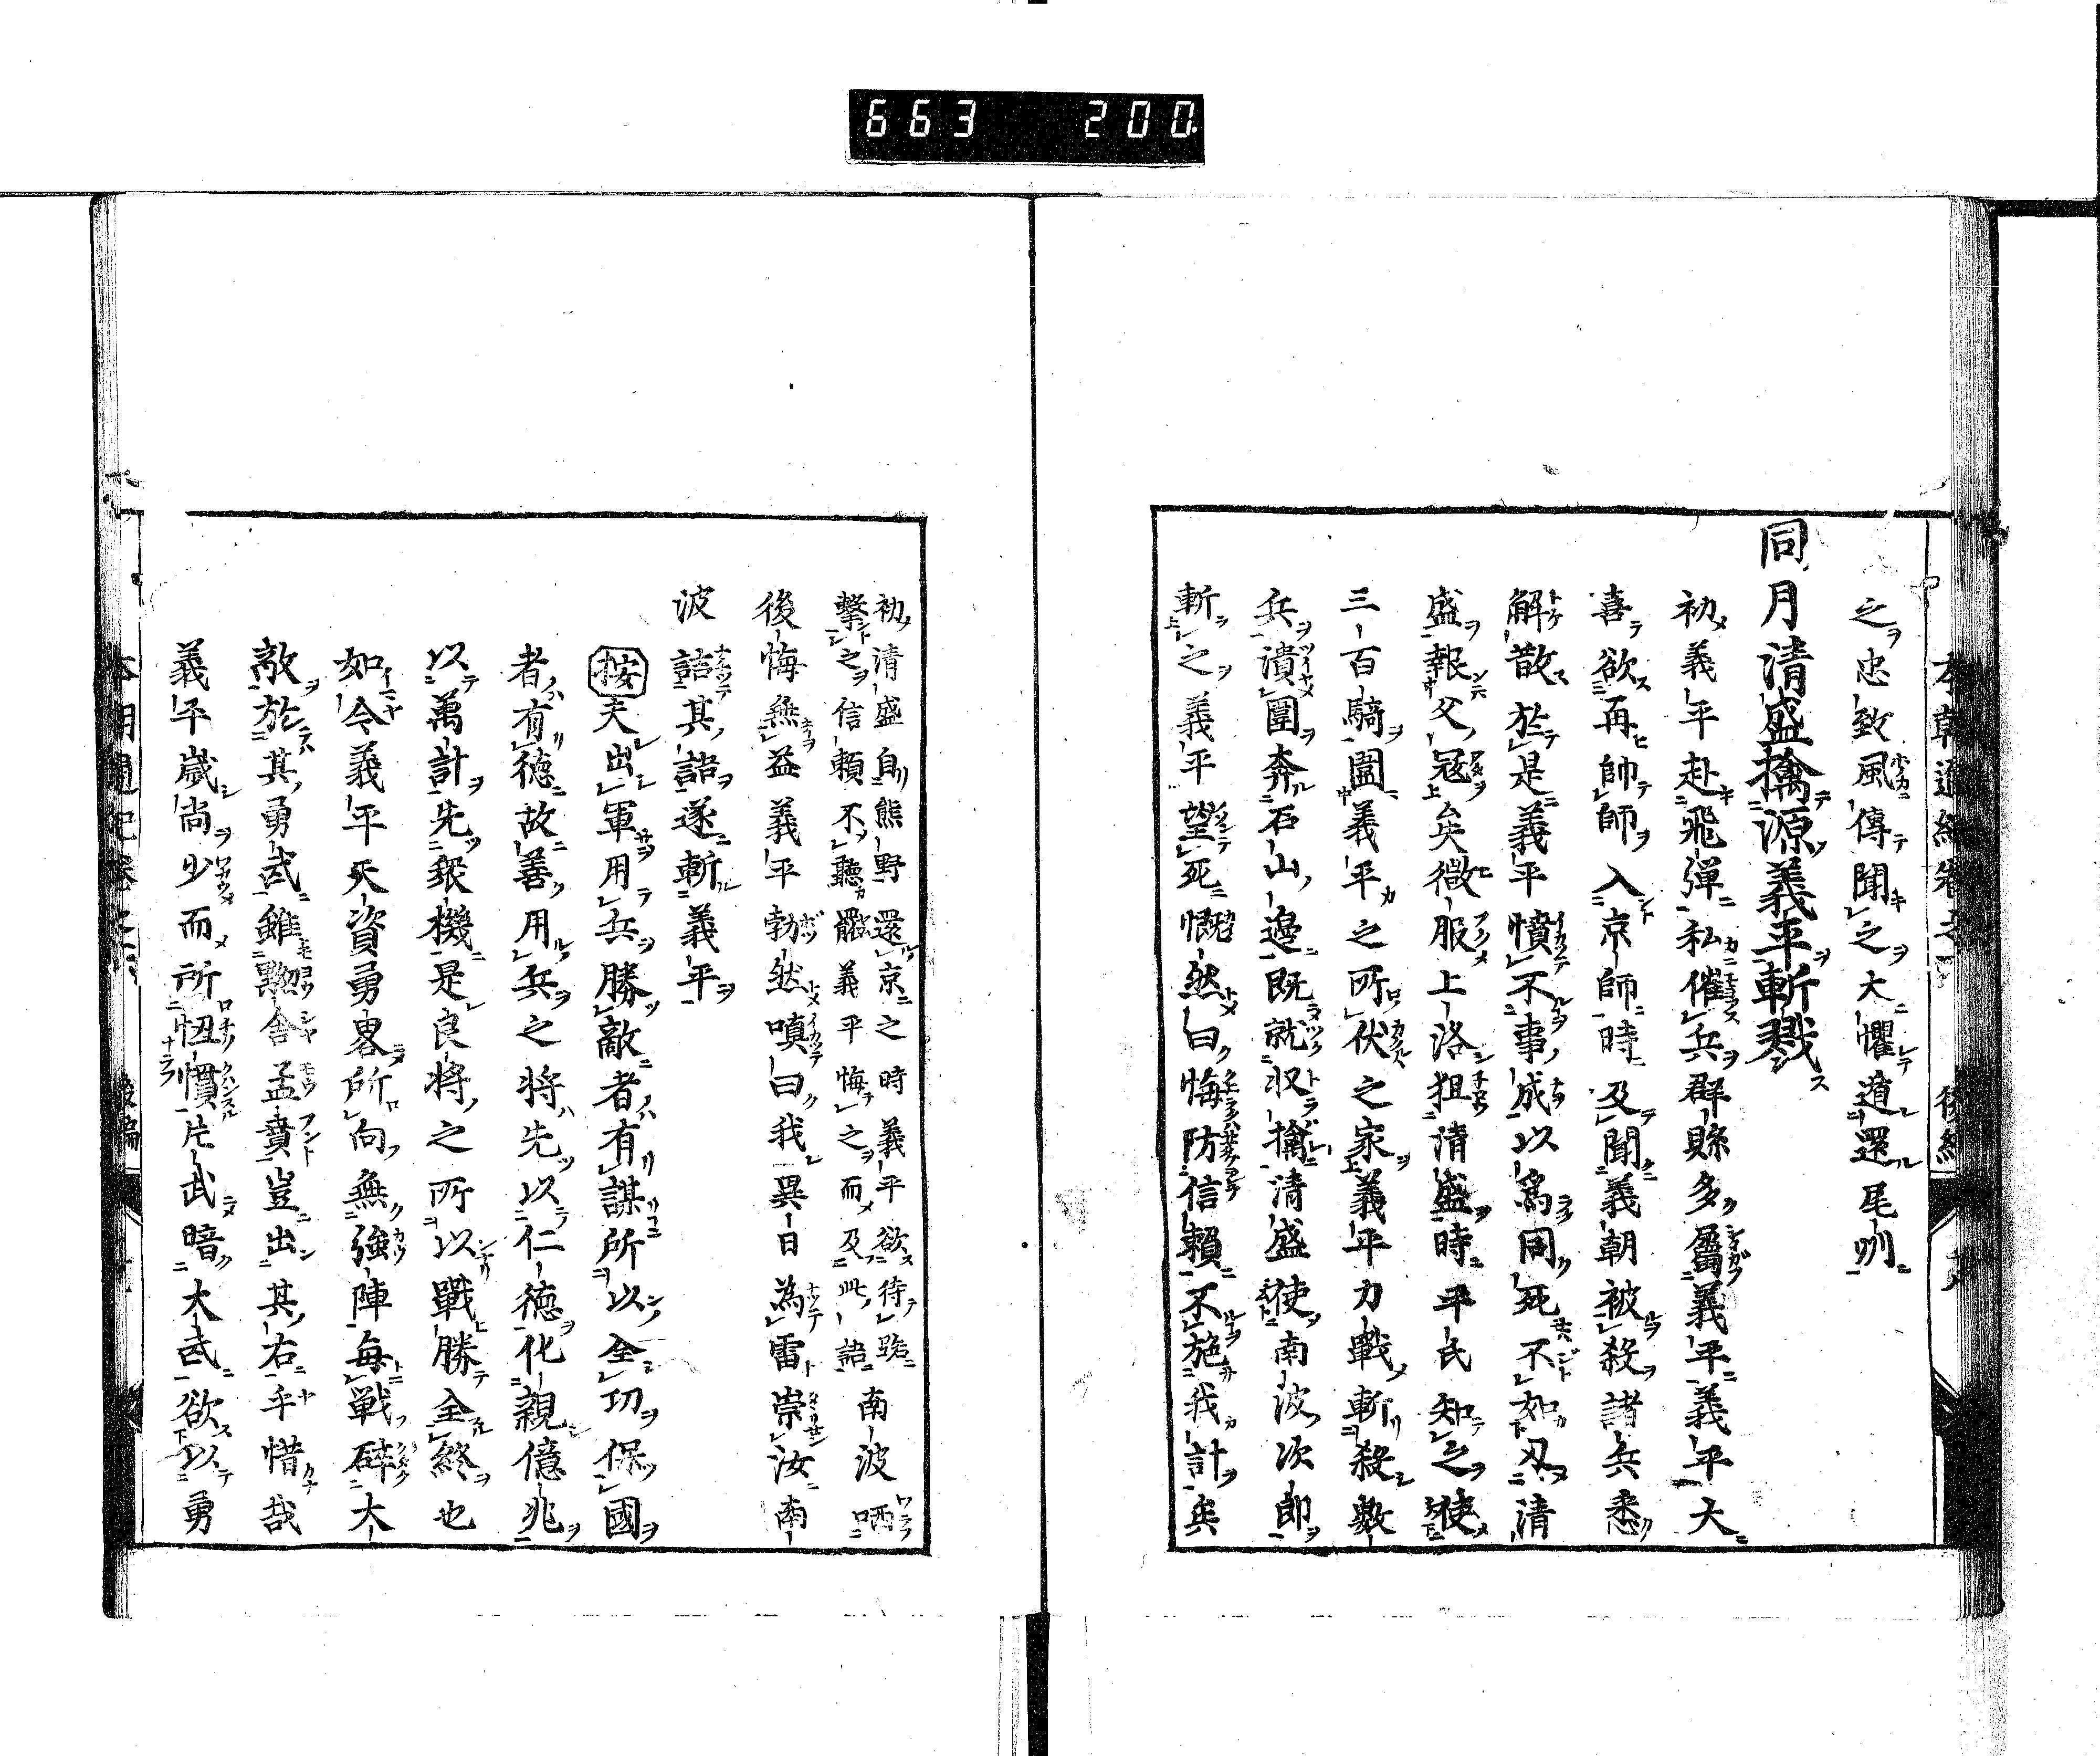 663 200
之忠致風傳聞之大懼遁還尾州
同月清盛擒源義平斬戮
初義平赴飛彈私催兵群縣多屬義平義平大
喜欲再帥師入京師時及聞義朝被殺諸兵悉
解散於是義平憤不事成以為同死不如刄清
盛報父冦矣微服上洛狙清盛時平氏知之使
三百騎圍義平之所伏之家義平力戰斬殺數
兵潰圍奔石山邊既就収擒清盛使南波次郎
斬之義平望死慨然曰悔防信賴不施我計矣
初清盛自熊野還京之時義平欲待路
擊之信賴不聽罷義平悔之而及此語
南波哂
後悔無益義平勃然嗔曰我異日為雷崇汝南
波詰其語遂斬義平
按夫出軍用兵勝敵者有謀所以全功保國
者有德故善用兵之将先以仁德化親億兆
以萬計先衆機是良将之所以戰勝全終也
如今義平天資勇畧所向無強陣每戦碎大
敵於其勇武雖黝舍孟賁豈出其右乎惜哉
義平歲尚少而所忸慣片武暗大武欲以勇